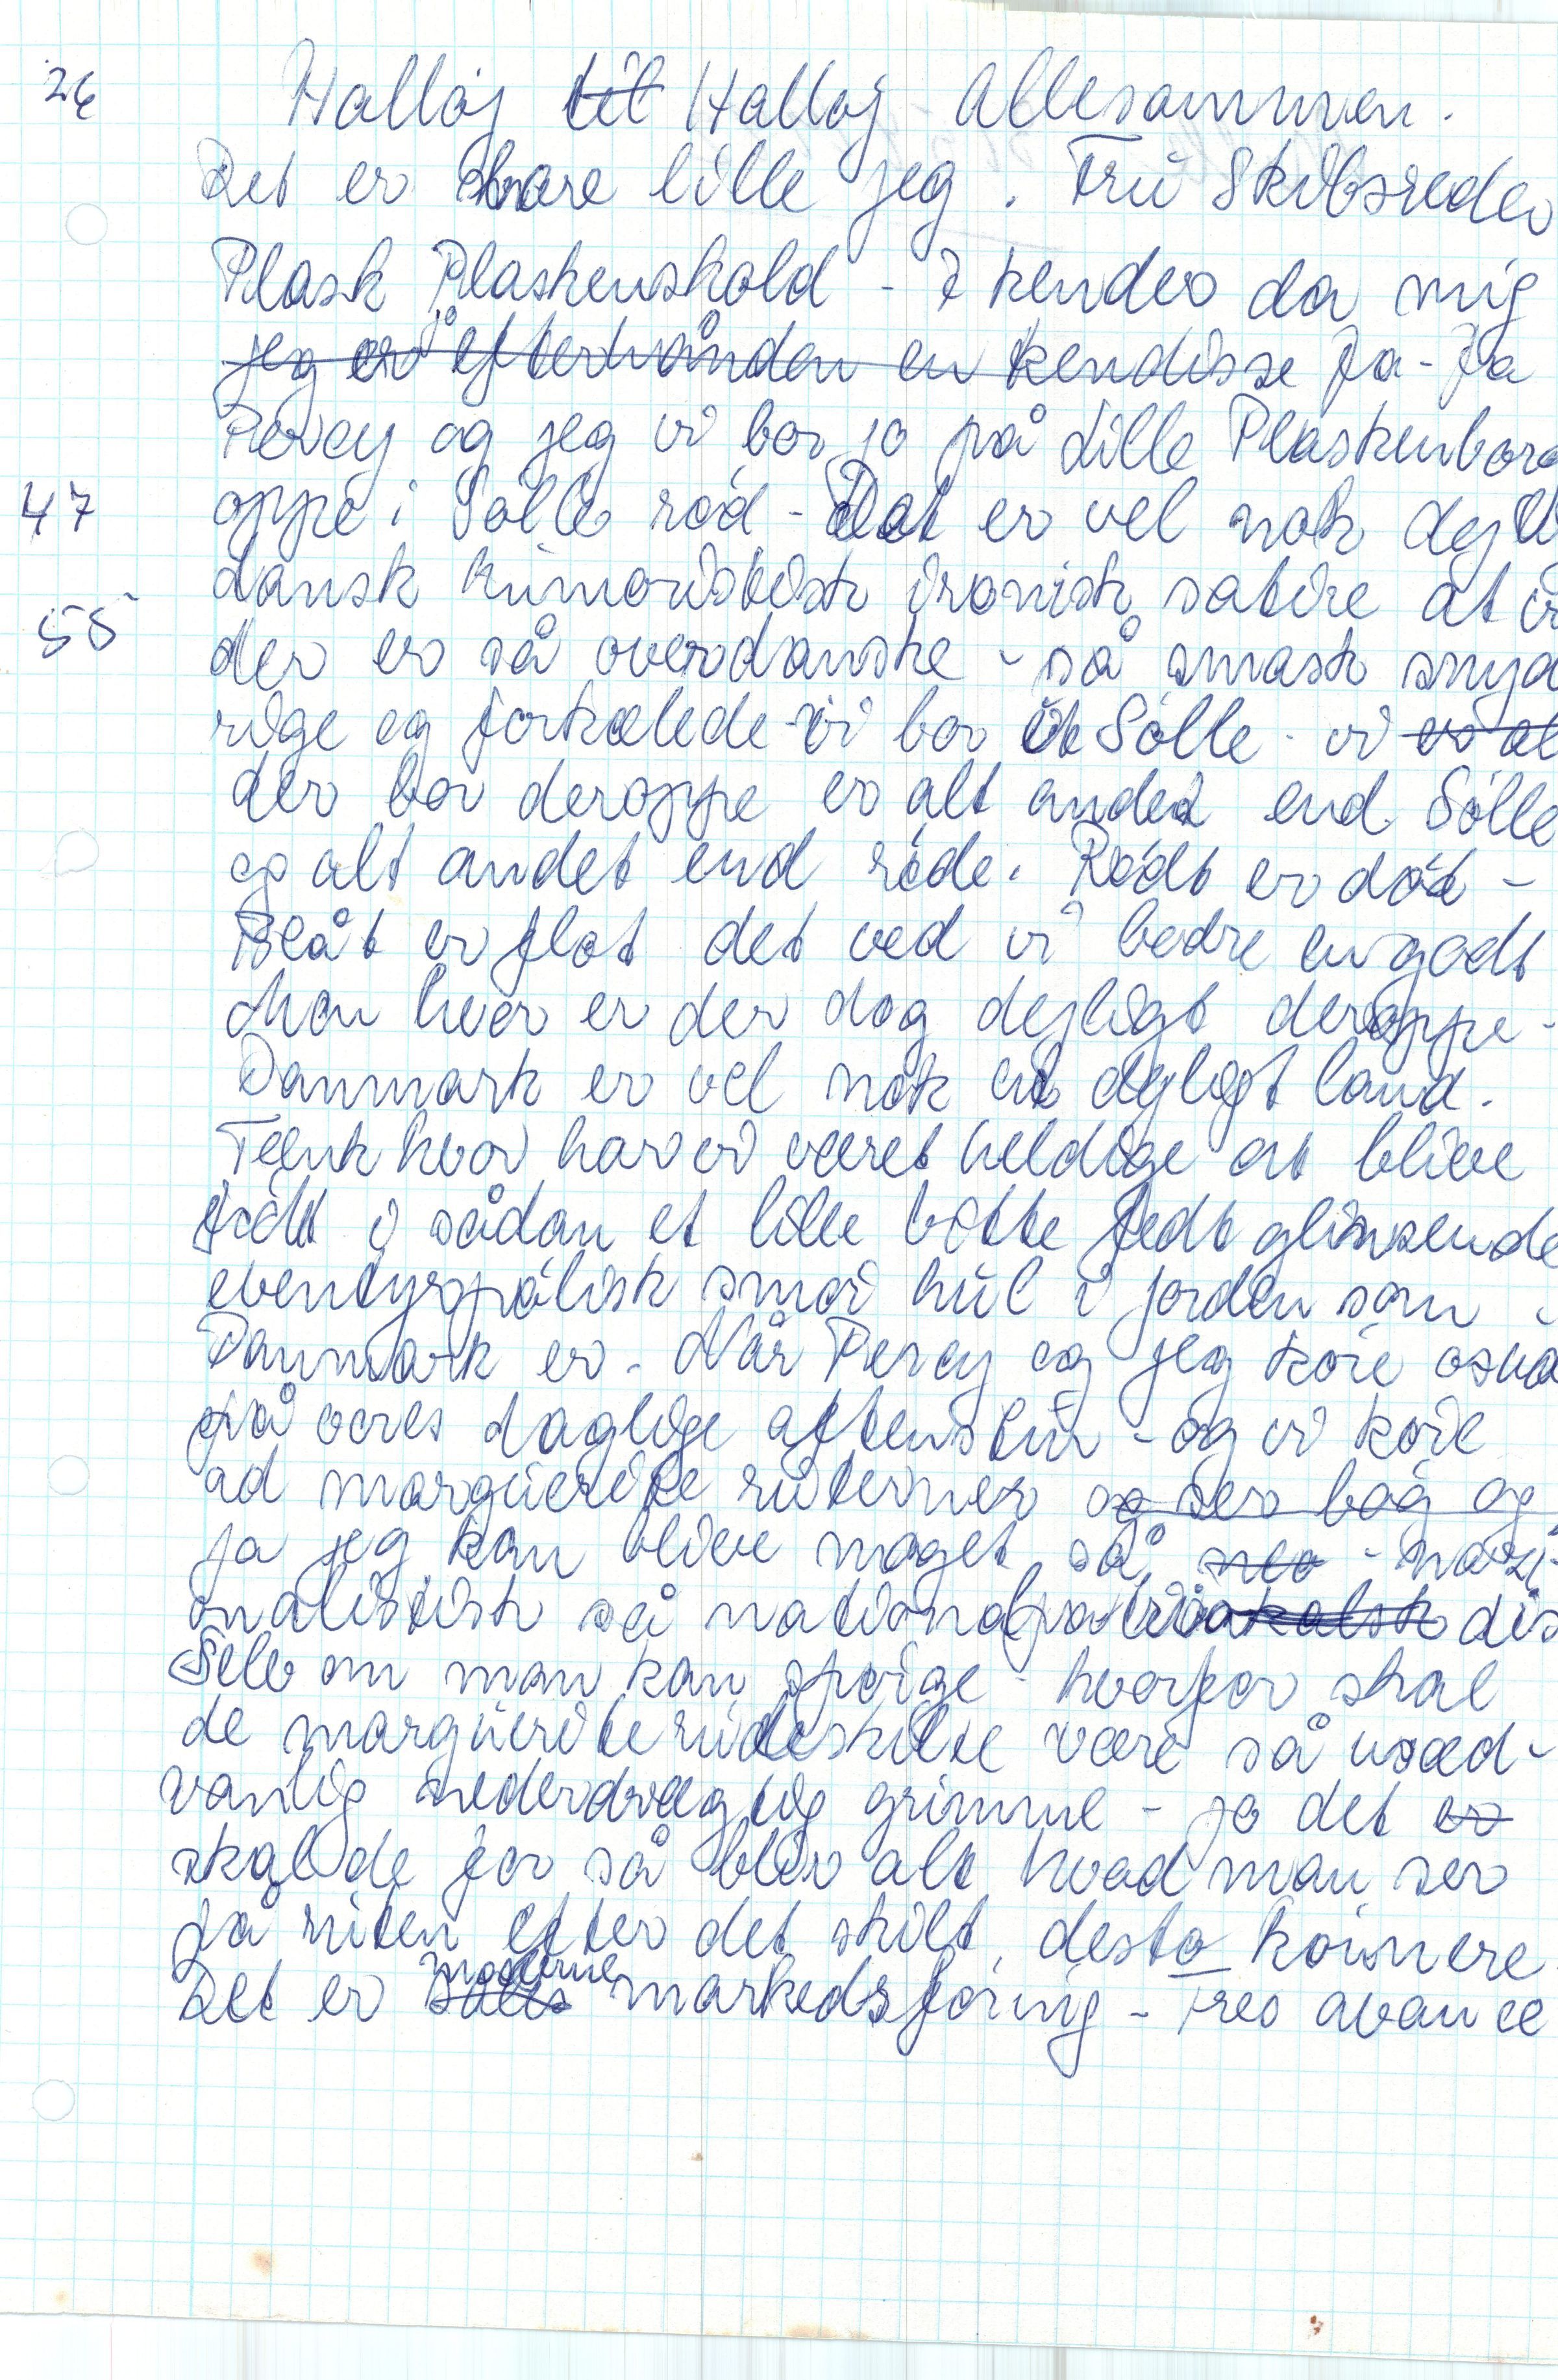 26
Halløj til Halløj - Allesammen.
Det er bare lille jeg. Fru Skibsreder
Plask Plaskenskold - I kender da mig
jeg er jo efterhånden en kendisse Ja - Ja
Percy og jeg vi bor jo på Lille Plaskenborg
47 oppe i Sølle rød - Det er vel nok
dansk humoristisk ironisk satire at vi
55 der er så overdanske - så smask snyd
rige og forkælede - vi bor i Sølle - vi
der bor deroppe er alt andet end Sølle
og alt andet end røde. Rødt er død -
Blåt er flot det ved vi bedre en godt
Men hvor er der dog dejligt deroppe -
Danmark er vel nok et dejligt land.
Tænk hvor har vi været heldige at blive
født i sådan et lille bitte fedt glinsende
eventyrspølisk smør hul i jorden som
Danmark er. Når Percy og jeg køre
på vores daglige aftenstur - og vi køre
ad marguerite ruterner og ser bag og
ja jeg kan blive maget så neo - nazi-
onalistisk så national
Selv om man kan spørge - hvorfor skal
de marguerite ruteskilte være så usæd-
vanlig nederdrægtig grimme - jo det er
skal de for så blir alt hvad man ser
på ruten efter det skilt, desto kønnere
Det er moderne markedsføring - Tres avance